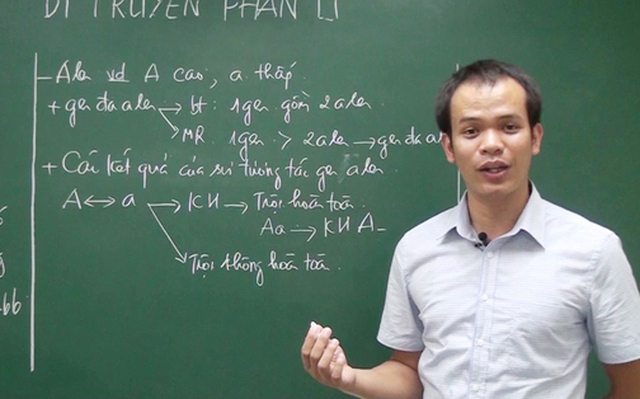 DI TRUYỀN PHÂN LI
- Alen vd A cao, a thấp
+ gen đa alen → bt: 1gen gồm 2 alen
→ MR. 1gen > 2 alen → gen đa al
+ Các kết quả của sự tương tác gen alen
A ↔ a → KH → Trội hoàn toàn
Aa → KH A-
→ Trội không hoàn toàn
bb